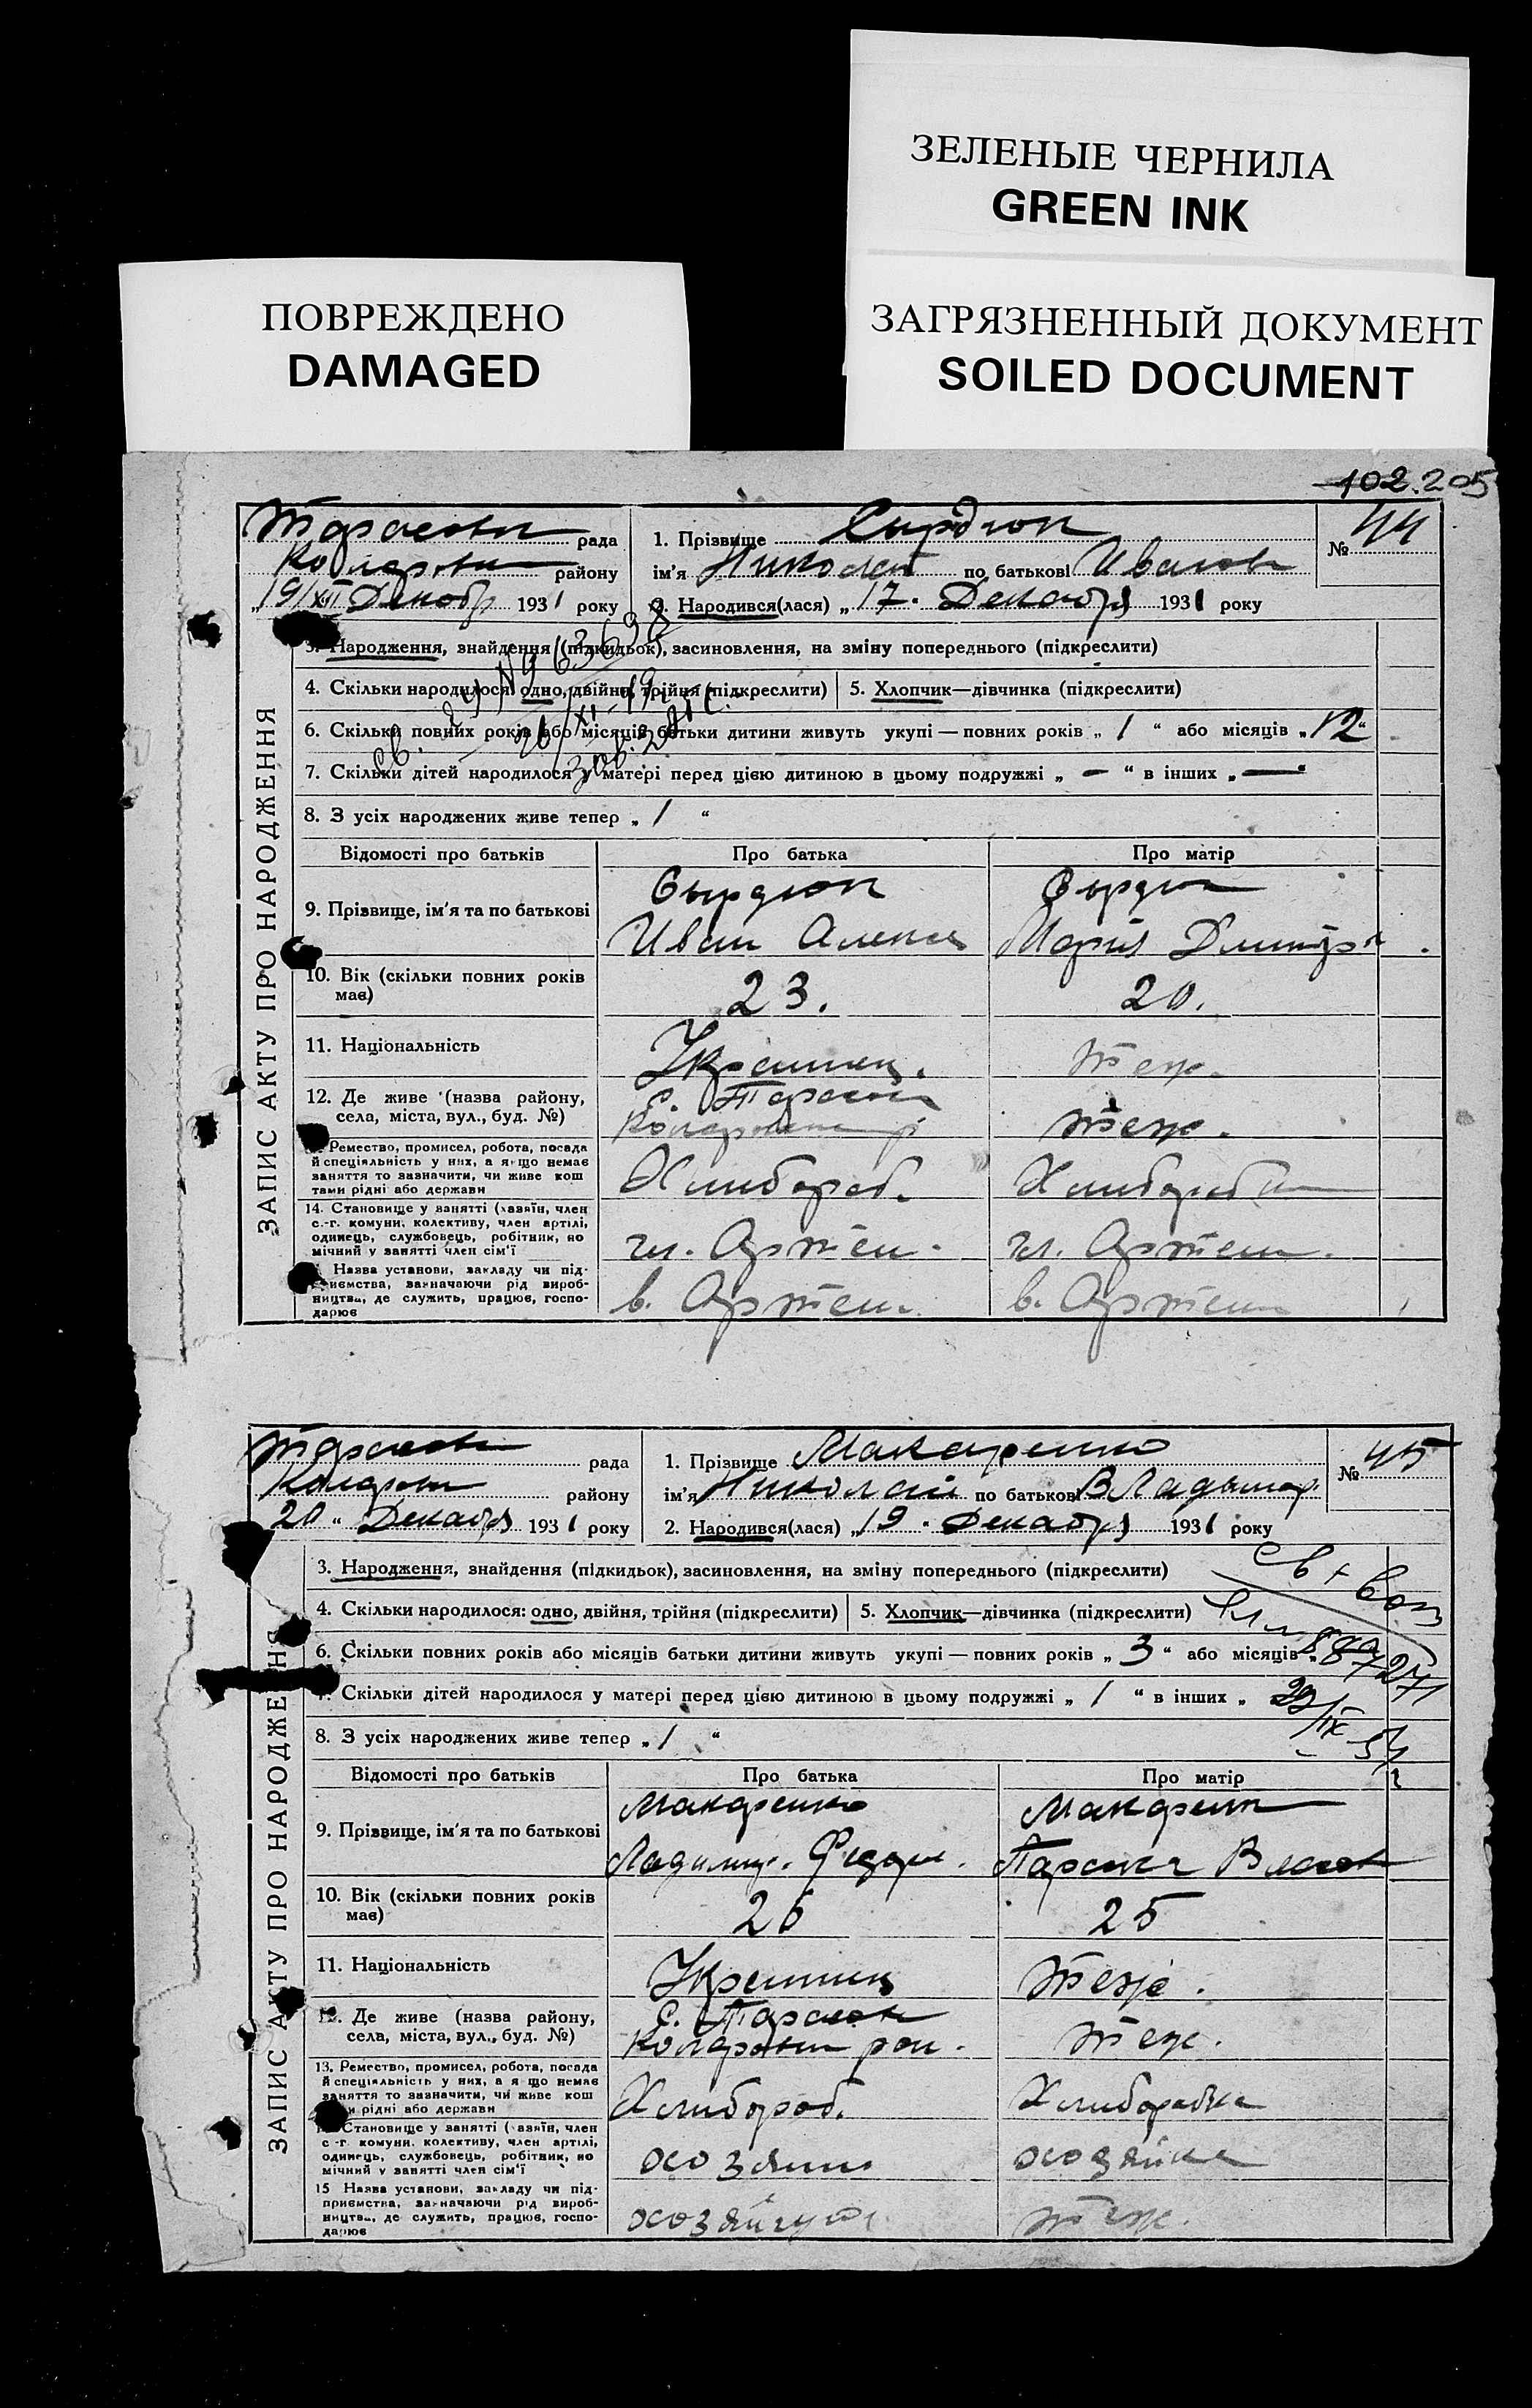 ЗЕЛЕНЫЕ ЧЕРНИЛА
GREEN INK
ПОВРЕЖДЕНО
DAMAGED
ЗАГРЯЗНЕННЫЙ ДОКУМЕНТ
SOILED DOCUMENT
102. 205
рада
району
19/XII Декабр 1931 року
1. Прізвище
ім'я Николай по батькові Иванов
2. Народився(лася) „17. Декабря 1931 року
№ 44
ЗАПИС АКТУ ПРО НАРОДЖЕННЯ
3. Народження, знайдення (підкидьок), засиновлення, на зміну попереднього (підкреслити)
4. Скільки народилося: одно, двійня, трійня (підкреслити) 5. Хлопчик—дівчинка (підкреслити)
6. Скільки повних років або місяців батьки дитини живуть укупі — повних років „ 1 “ або місяців „ 12 “
7. Скільки дітей народилося у матері перед цією дитиною в цьому подружжі „ — “ в інших „ — “
8. З усіх народжених живе тепер „ 1 “
Відомості про батьків Про батька Про матір
9. Прізвище, ім'я та по батькові
Иван Мария
10. Вік (скільки повних років має) 23. 20.
11. Національність Украинец. теж.
12. Де живе (назва району, села, міста, вул., буд. №) с. теж.
13. Ремество, промисел, робота, посада й спеціяльність у них, а якщо немає заняття то зазначити, чи живе коштами рідні або держави Хлибороб.
14. Становище у занятті (хазяїн, член с.-г. комуни, колективу, член артілі, одинець, службовець, робітник, помічний у занятті член сім'ї чл. Артели. чл. Артели.
15. Назва установи, закладу чи підприємства, зазначаючи рід виробництва, де служить, працює, господарює в. Артели. в. Артели
рада
району
20 “ Декабря 1931 року
1. Прізвище Макаренко
ім'я Николай по батькові Владимир.
2. Народився(лася) „19. Декабря 1931 року
№ 45
ЗАПИС АКТУ ПРО НАРОДЖЕННЯ
3. Народження, знайдення (підкидьок), засиновлення, на зміну попереднього (підкреслити)
4. Скільки народилося: одно, двійня, трійня (підкреслити) 5. Хлопчик—дівчинка (підкреслити)
6. Скільки повних років або місяців батьки дитини живуть укупі — повних років „ 3 “ або місяців
7. Скільки дітей народилося у матері перед цією дитиною в цьому подружжі „ 1 “ в інших „
8. З усіх народжених живе тепер „ 1 “
Відомості про батьків Про батька Про матір
Макаренко Макаренко
9. Прізвище, ім'я та по батькові
10. Вік (скільки повних років має) 26 25
11. Національність Украинец теж.
12. Де живе (назва району, села, міста, вул., буд. №) с. теж.
13. Ремество, промисел, робота, посада й спеціяльність у них, а якщо немає заняття то зазначити, чи живе коштами рідні або держави Хлибороб. Хлиборобка
14. Становище у занятті (хазяїн, член с.-г. комуни, колективу, член артілі, одинець, службовець, робітник, помічний у занятті член сім'ї хозяин хозяйка
15 Назва установи, закладу чи підприємства, зазначаючи рід виробництва, де служить, працює, господарює теж.